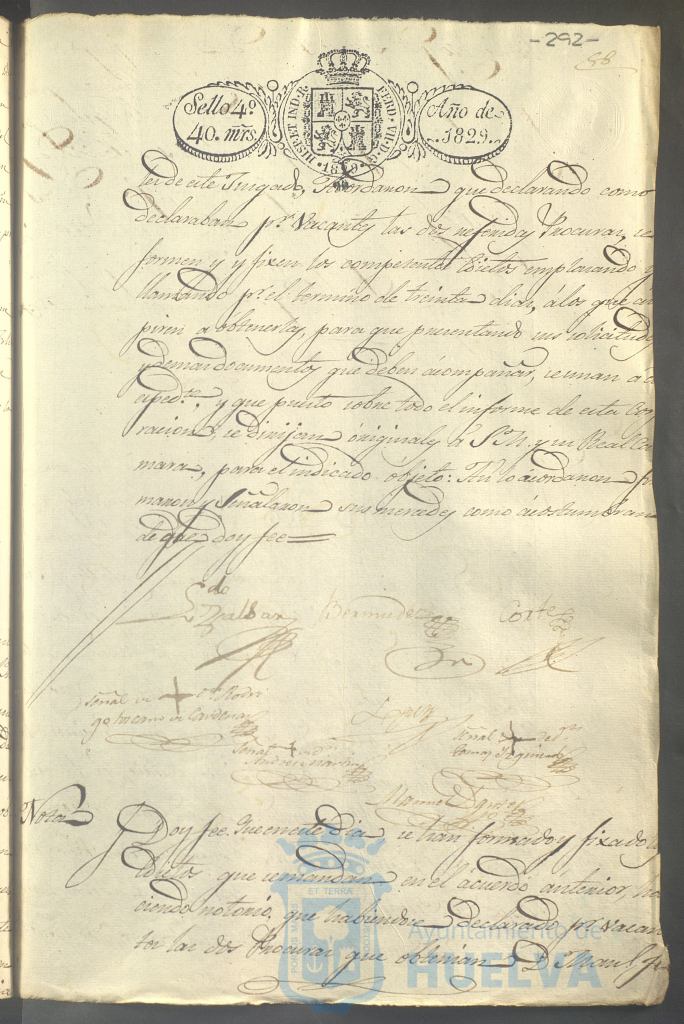 -292-
58
Sello 4º
40. mrs
HISP. ET IND. R.
FERD. VII. D. G.
1829
Año de
1829.
de este Juzgado, Acordaron que declarando como
declaraban pr. Vacantes las dos referidas Procuras, se
formen y y fixen los competentes Edictos emplazando y
llamando pr. el termino de treinta dias, álos que as
piren a obtenerlas, para que presentando sus solicitudes
y demas documentos que deben ácompañar, se unan á
exped.te y que puesto sobre todo el informe de esta Corpo
racion, se dirijan óriginales a S. M. y su Real Ca
mara, para el indicado objeto: Asi lo ácordaron fir
maron y Señalaron sus mercedes como ácostumbran
de que doy fee=
Ldo
Bermudez
Corte
señal de + Dn. Rodri
go de Cardenas
Lopez
señal + de Dn
señal + de Dn
Manuel
Nota
Doy fee: Que en este Dia se han formado y fixado los
Edictos que se mandan en el ácuerdo ánterior, ha
ciendo notorio, que habiendose Declarado pr. vacan
tes las dos Procuras que obtenian Dn. Manl.
ET TERRA
Ayuntamiento de
HUELVA